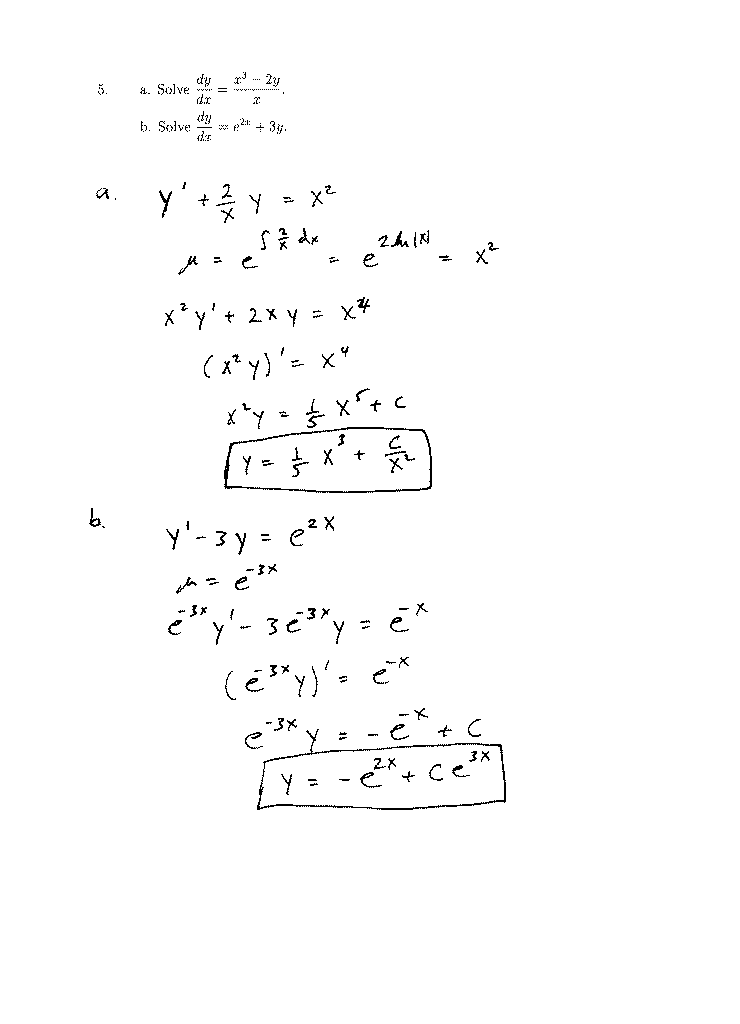 5. a. Solve dy/dx = (x³ − 2y)/x.
b. Solve dy/dx = e^{2x} + 3y.
a. y' + 2/x y = x²
μ = e^{∫ 2/x dx} = e^{2 ln|x|} = x²
x² y' + 2xy = x⁴
(x² y)' = x⁴
x² y = 1/5 x⁵ + C
y = 1/5 x³ + C/x²
b. y' − 3y = e^{2x}
μ = e^{−3x}
e^{−3x} y' − 3e^{−3x} y = e^{−x}
(e^{−3x} y)' = e^{−x}
e^{−3x} y = −e^{−x} + C
y = −e^{2x} + Ce^{3x}